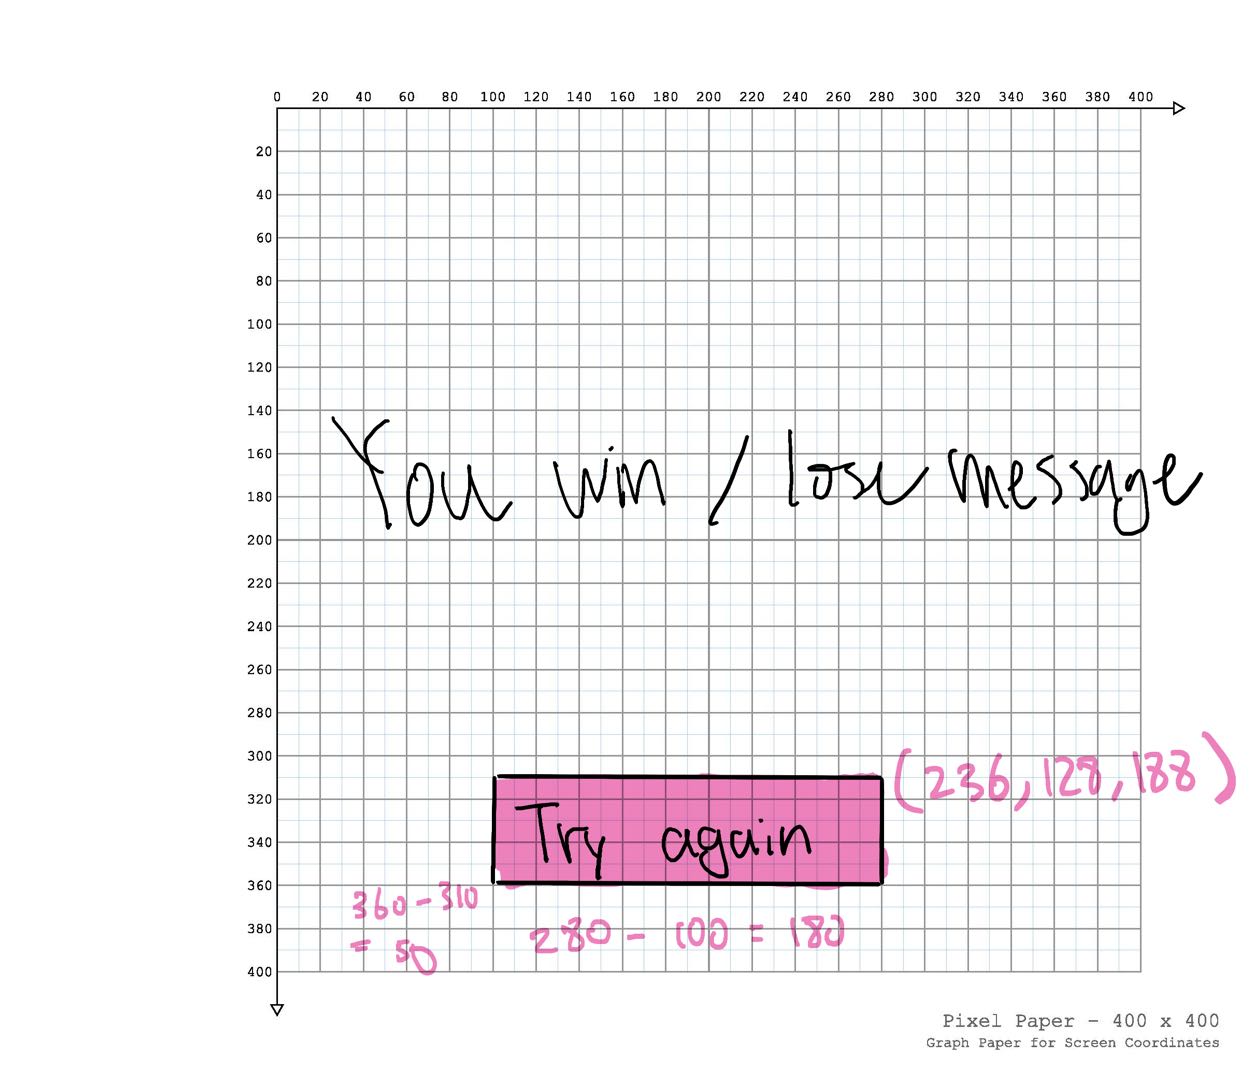 0 20 40 60 80 100 120 140 160 180 200 220 240 260 280 300 320 340 360 380 400
20
40
60
80
100
120
140
160
180
200
220
240
260
280
300
320
340
360
380
400
You win / lose message
(236, 128, 188)
Try again
360 - 310
= 50
280 - 100 = 180
Pixel Paper - 400 x 400
Graph Paper for Screen Coordinates